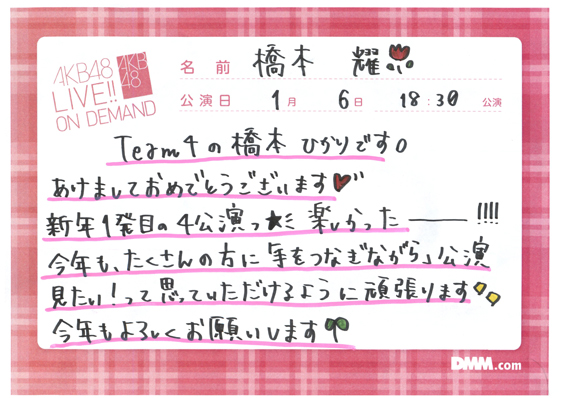 AKB48
LIVE!!
ON DEMAND
AKB
48
名前 橋本 耀
公演日 1月 6日 18:30 公演
Team4の橋本ひかりです。
あけましておめでとうございます
新年1発目の4公演っ★ 楽しかったーーー!!!!
今年も、たくさんの方に「手をつなぎながら」公演
見たい!って思っていただけるように頑張ります
今年もよろしくお願いします
DMM.com